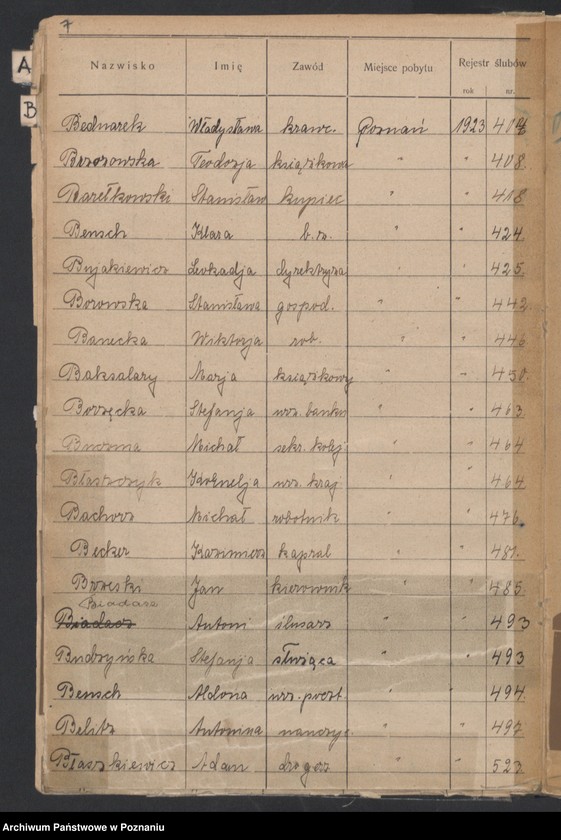 7
Nazwisko Imię Zawód Miejsce pobytu Rejestr ślubów
rok nr.
A
B
Bednarek Władysława krawc. Poznań 1923 404
Brzozowska Teodozja książkowa " " 408
Barełkowski Stanisław kupiec " " 418
Bensch Klara b. z. " " 424
Bujakiewicz Leokadja dyrektryza " " 425
Borowska Stanisława gospod. " " 442
Banecka Wiktorja rob. " " 446
Baksalary Marja książkowy " " 450
Borzęcka Stefanja urz. banku " " 463
Michał sekr. kolej " " 464
Błaszczyk Kornelja urz. kraj " " 464
Bachorz Michał robotnik " " 476
Becker Kazimierz kapral " " 481.
Brzeski Jan kierownik " " 485
Biadasz
Antoni ślusarz " " 493
Budzyńska Stefanja służąca " " 493
Bensch Aldona urz. poczt " " 494
Belitz Antonina nauczyc. " " 497
Błaszkiewicz Adam drogerz " " 523
Archiwum Państwowe w Poznaniu